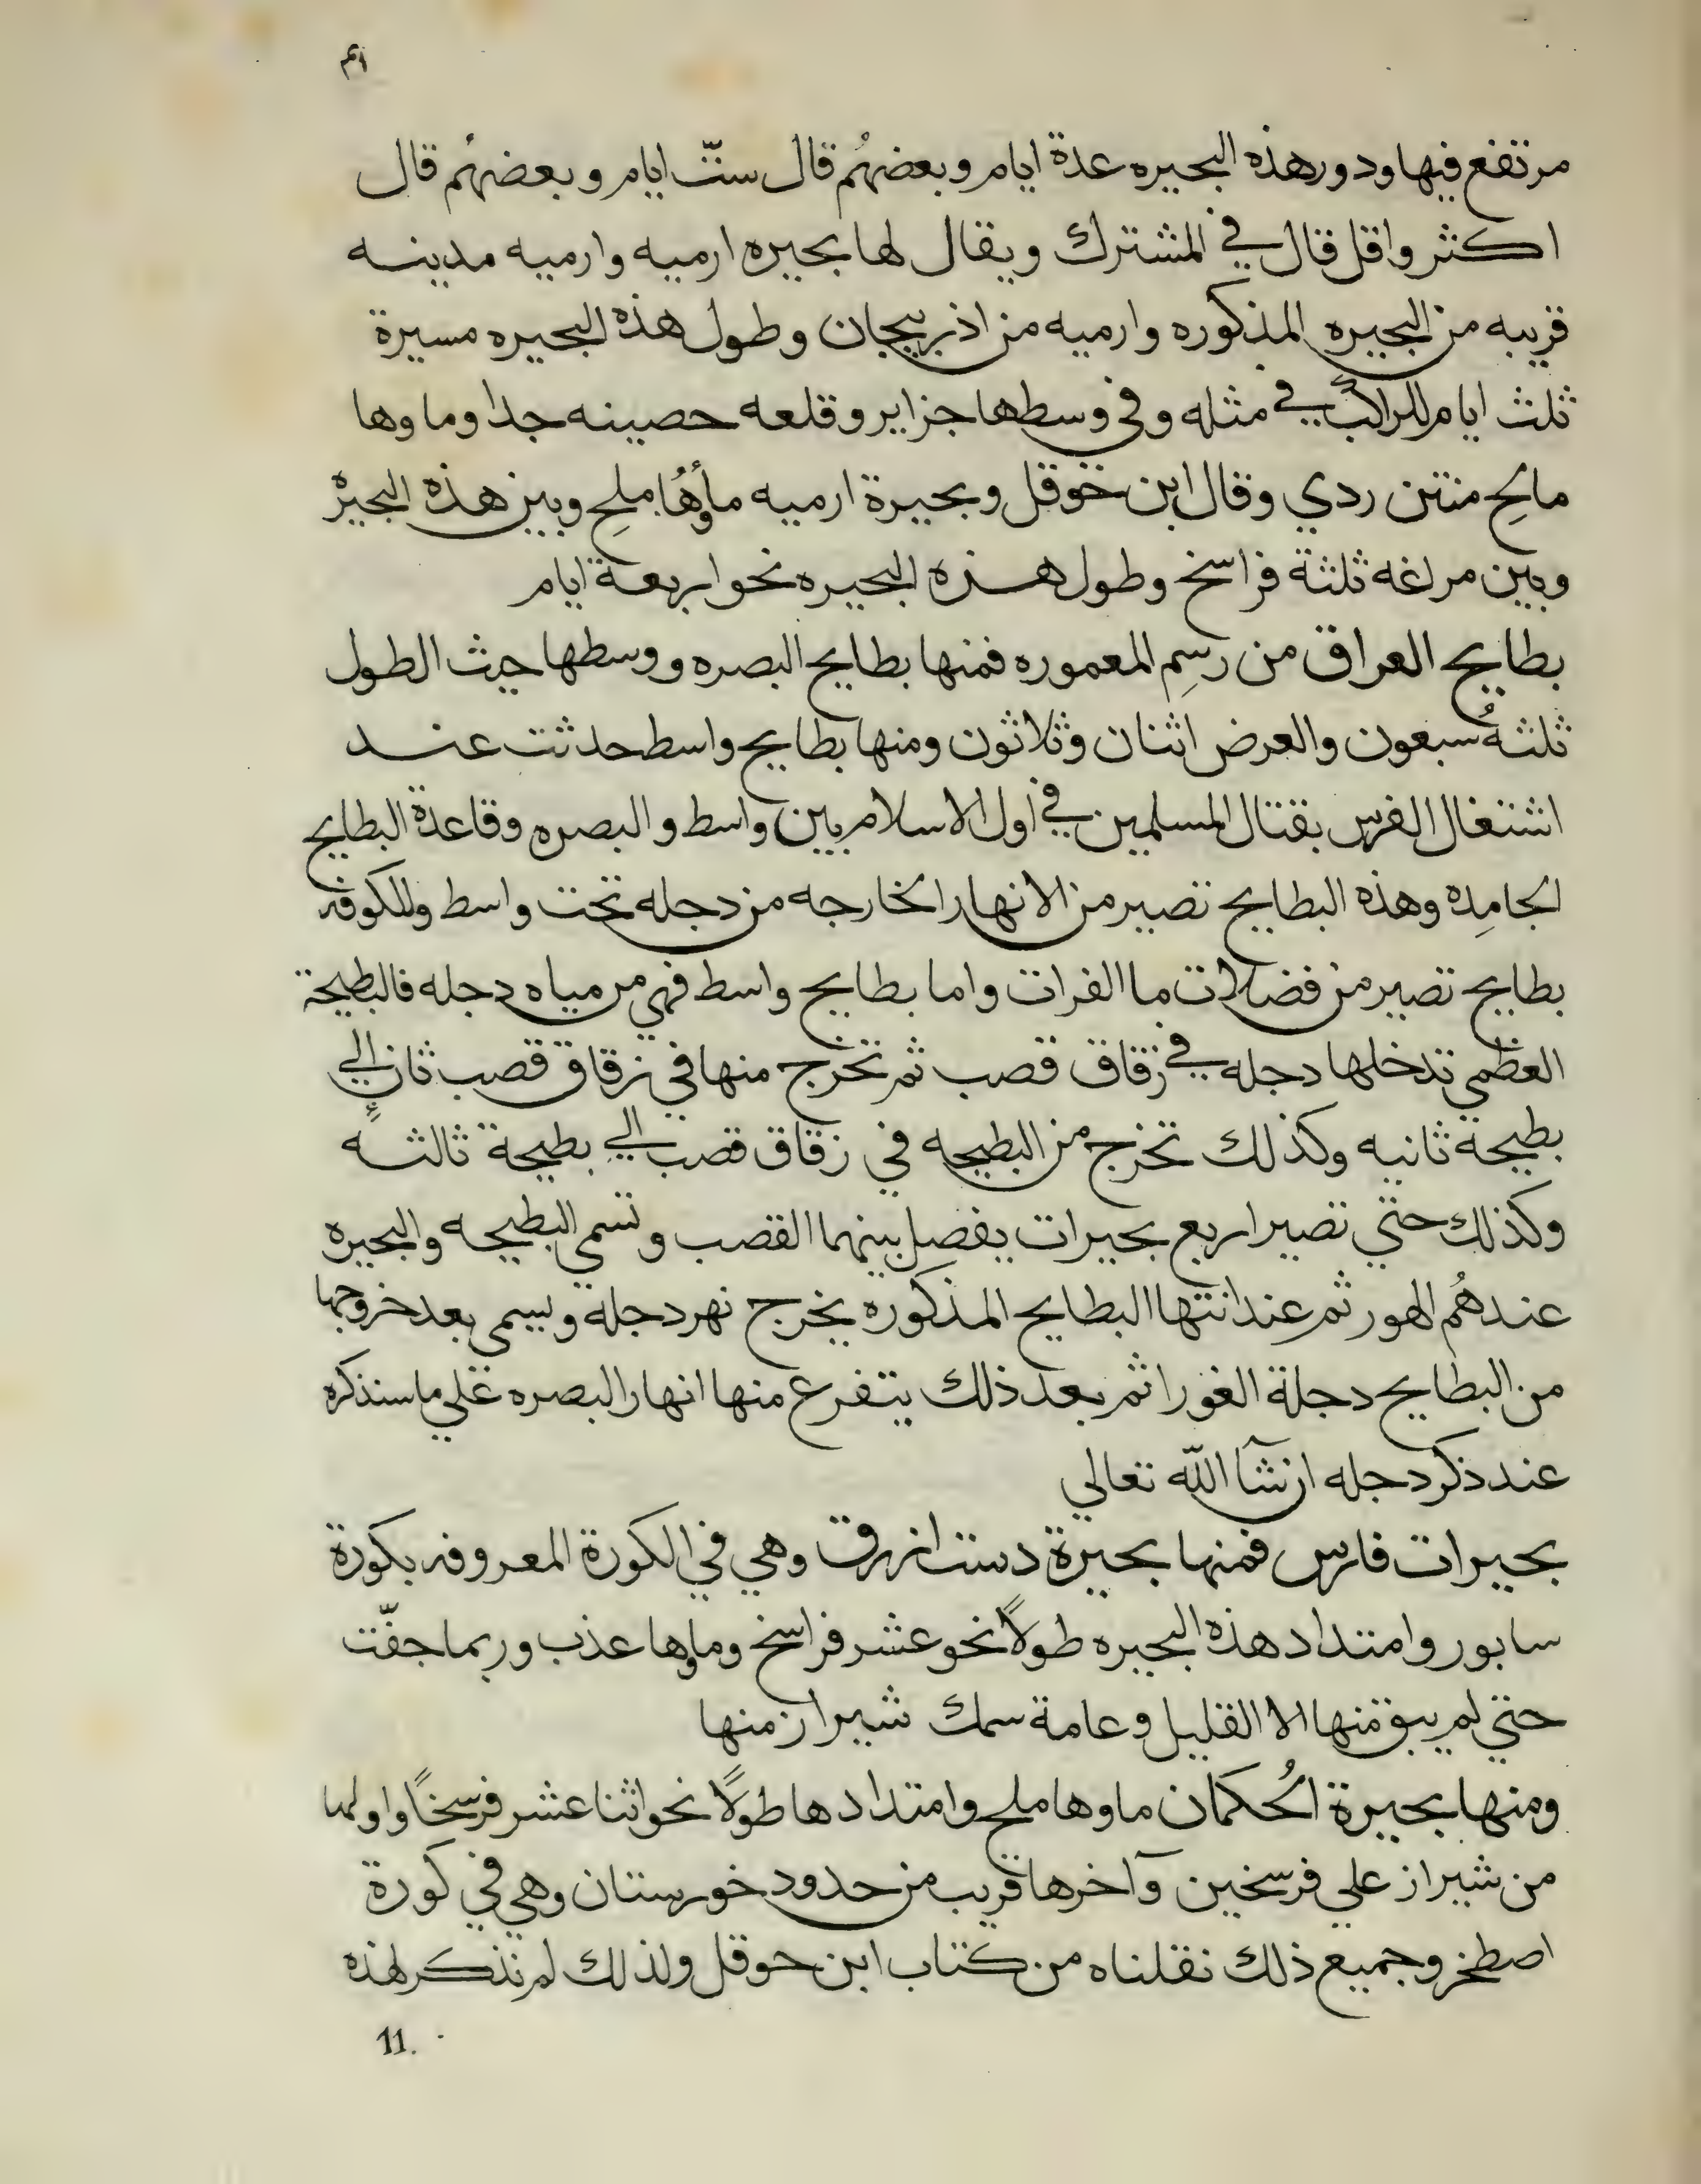 ٤١
مرتفع فيها ودور هذه البحيره عدة ايام وبعضهُم قال ستّ ايام وبعضهُم قال
اكثر واقل قال في المشترك ويقال لها بحيره ارميه وارميه مدينه
قريبه من البحيره المذكوره وارميه من اذربيجان وطول هذه البحيره مسيرة
ثلث ايام للراكب في مثله وفي وسطها جزاير وقلعه حصينه جدا وماوها
مالح منتن ردي وقال ابن خوقل وبحيرة ارميه ماؤهُا ملح وبين هذه البحيرة
وبين مراغه ثلثة فراسخ وطول هذه البحيره نحو اربعة ايام
بطايح العراق من رسِم المعموره فمنها بطايح البصره ووسطها حيث الطول
ثلثهُ سبعون والعرض اثنان وثلاثون ومنها بطايح واسط حدثت عند
اشتغال الفرس بقتال المسلمين في اول الاسلام بين واسط والبصره وقاعدة البطايح
الجامِده وهذه البطايح تصير من الانهار الخارجه من دجله تحت واسط وللكوفه
بطايح تصير من فضلات ما الفرات واما بطايح واسط فهي من مياه دجله فالبطيحة
العظمي تدخلها دجله في زقاق قصب ثم تخرج منها في زقاق قصب ثان الي
بطيحة ثانيه وكذلك تخرج من البطيحه في زقاق قصب الي بطيحة ثالثه
وكذلك حتي تصير اربع بحيرات يفصل بينهما القصب وتسمي البطيحه والبحيره
عندهُم الهور ثم عند انتها البطايح المذكوره يخرج نهر دجلة ويسمي بعد خروجها
من البطايح دجلة الغورا ثم بعد ذلك يتفرع منها انهار البصره علي ما سنذكره
عند ذكر دجله ان شآ اللّه تعالي
بحيرات فارس فمنها بحيرة دست ازرق وهي في الكورة المعروفه بكورة
سابور وامتداد هذه البحيره طولاً نحو عشر فراسخ وماوها عذب وربما جفّت
حتي لم يبق منها الا القليل وعامة سمك شيراز منها
ومنها بحيرة الحُكمان ماوها ملح وامتدادها طولاً نحو اثنا عشر فرسخاً واولها
من شيراز علي فرسخين وآخرها قريب من حدود خورستان وهي في كورة
اصطخر وجميع ذلك نقلناه من كتاب ابن حوقل ولذلك لم نذكر لهذه
11.